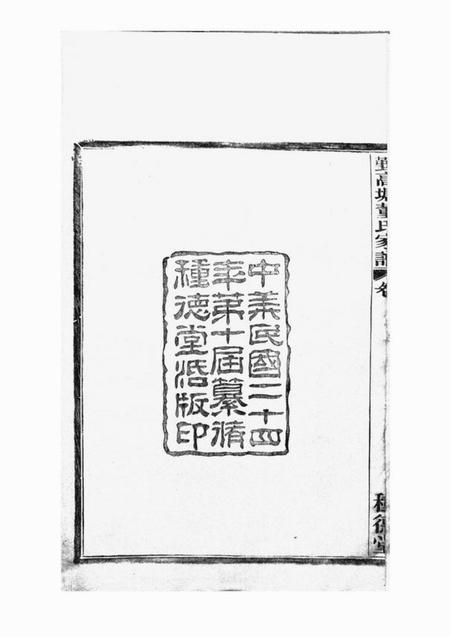 中華民國二十四
年第十届纂脩
種德堂活版印
高塘董氏家譜 卷
種德堂